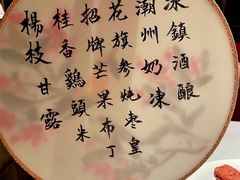 冰鎮酒釀
潮州奶凍
花旗參燒枣皇
招牌芒果布丁
桂香鷄頭米
楊枝甘露